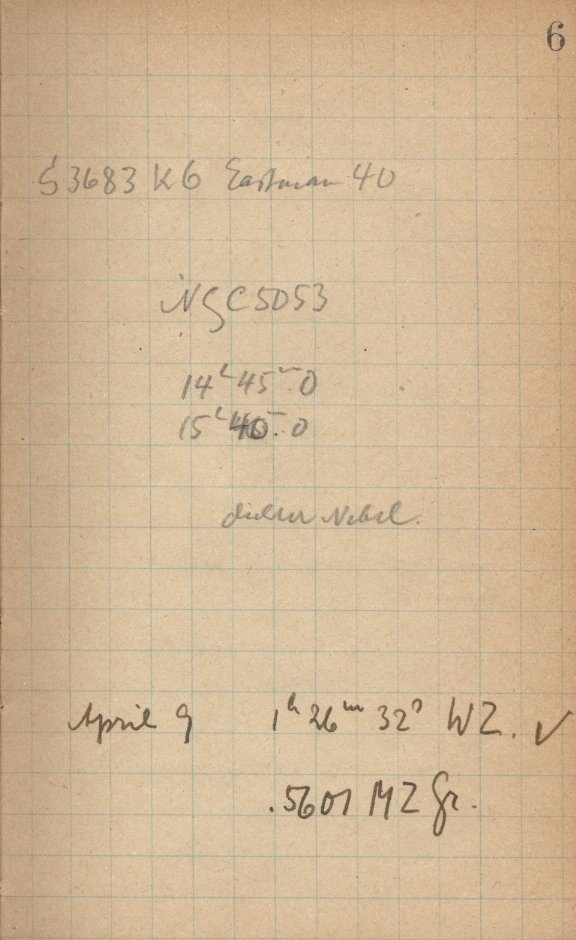 6
S 3683 K6 Eastman 40
NGC 5053
14ʰ45ᵐ.0
15ʰ40ᵐ.0
dicker Nebel.
April 9 1ʰ26ᵐ32ˢ WZ. ✓
.5601 MZ Gr.